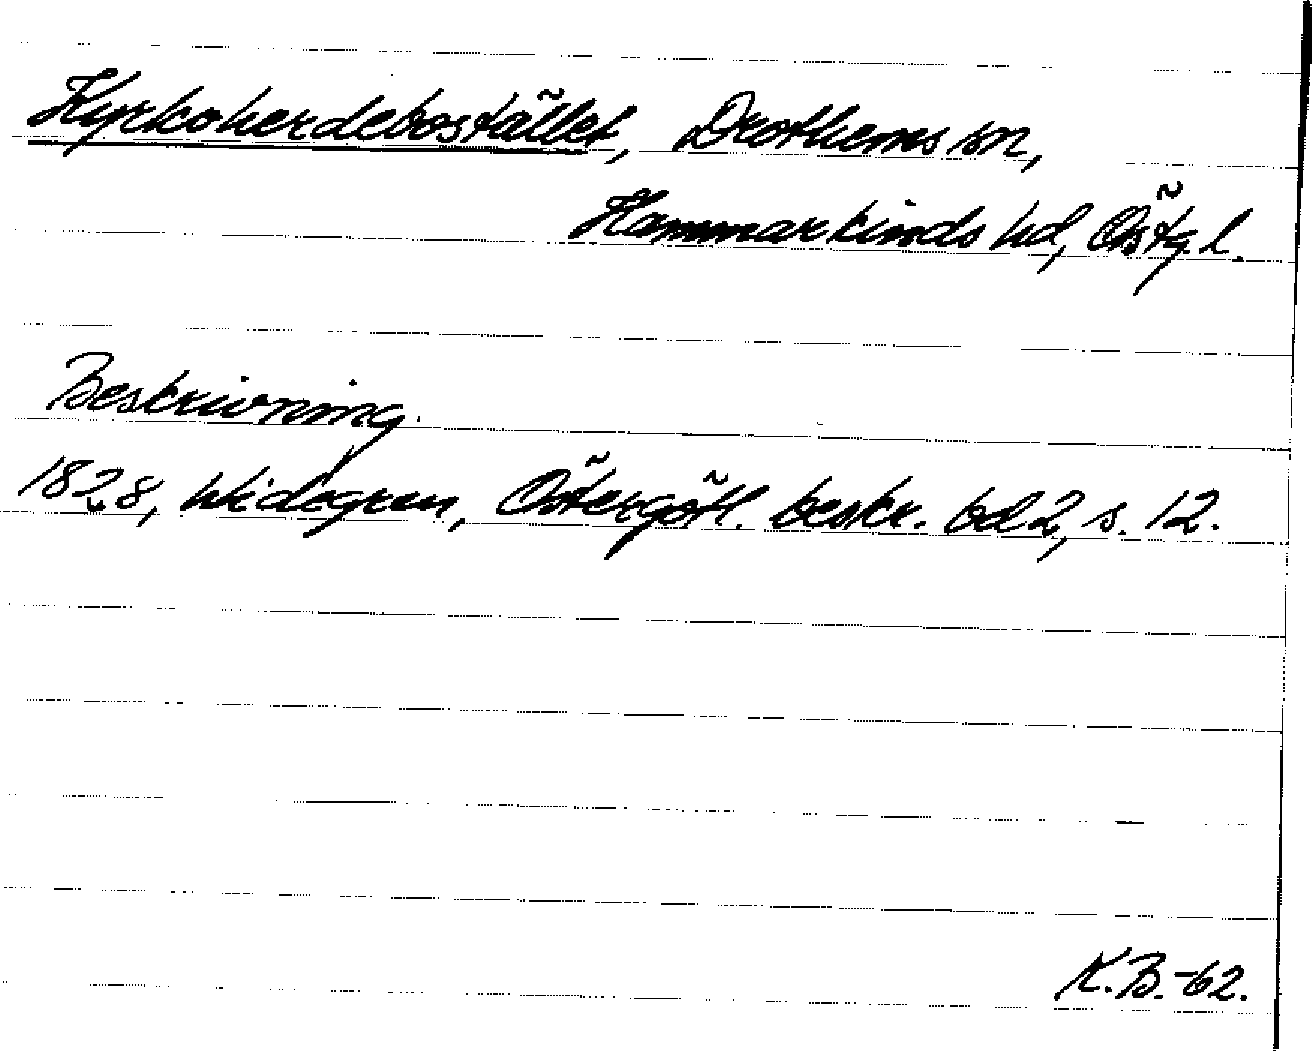 Kyrkoherdebostället, Drothems sn,
Hammarkinds hd, Östg.l.
Beskrivning.
1828, Widegren, Östergötl. beskr. bd 2, s. 12.
K.B.-62.